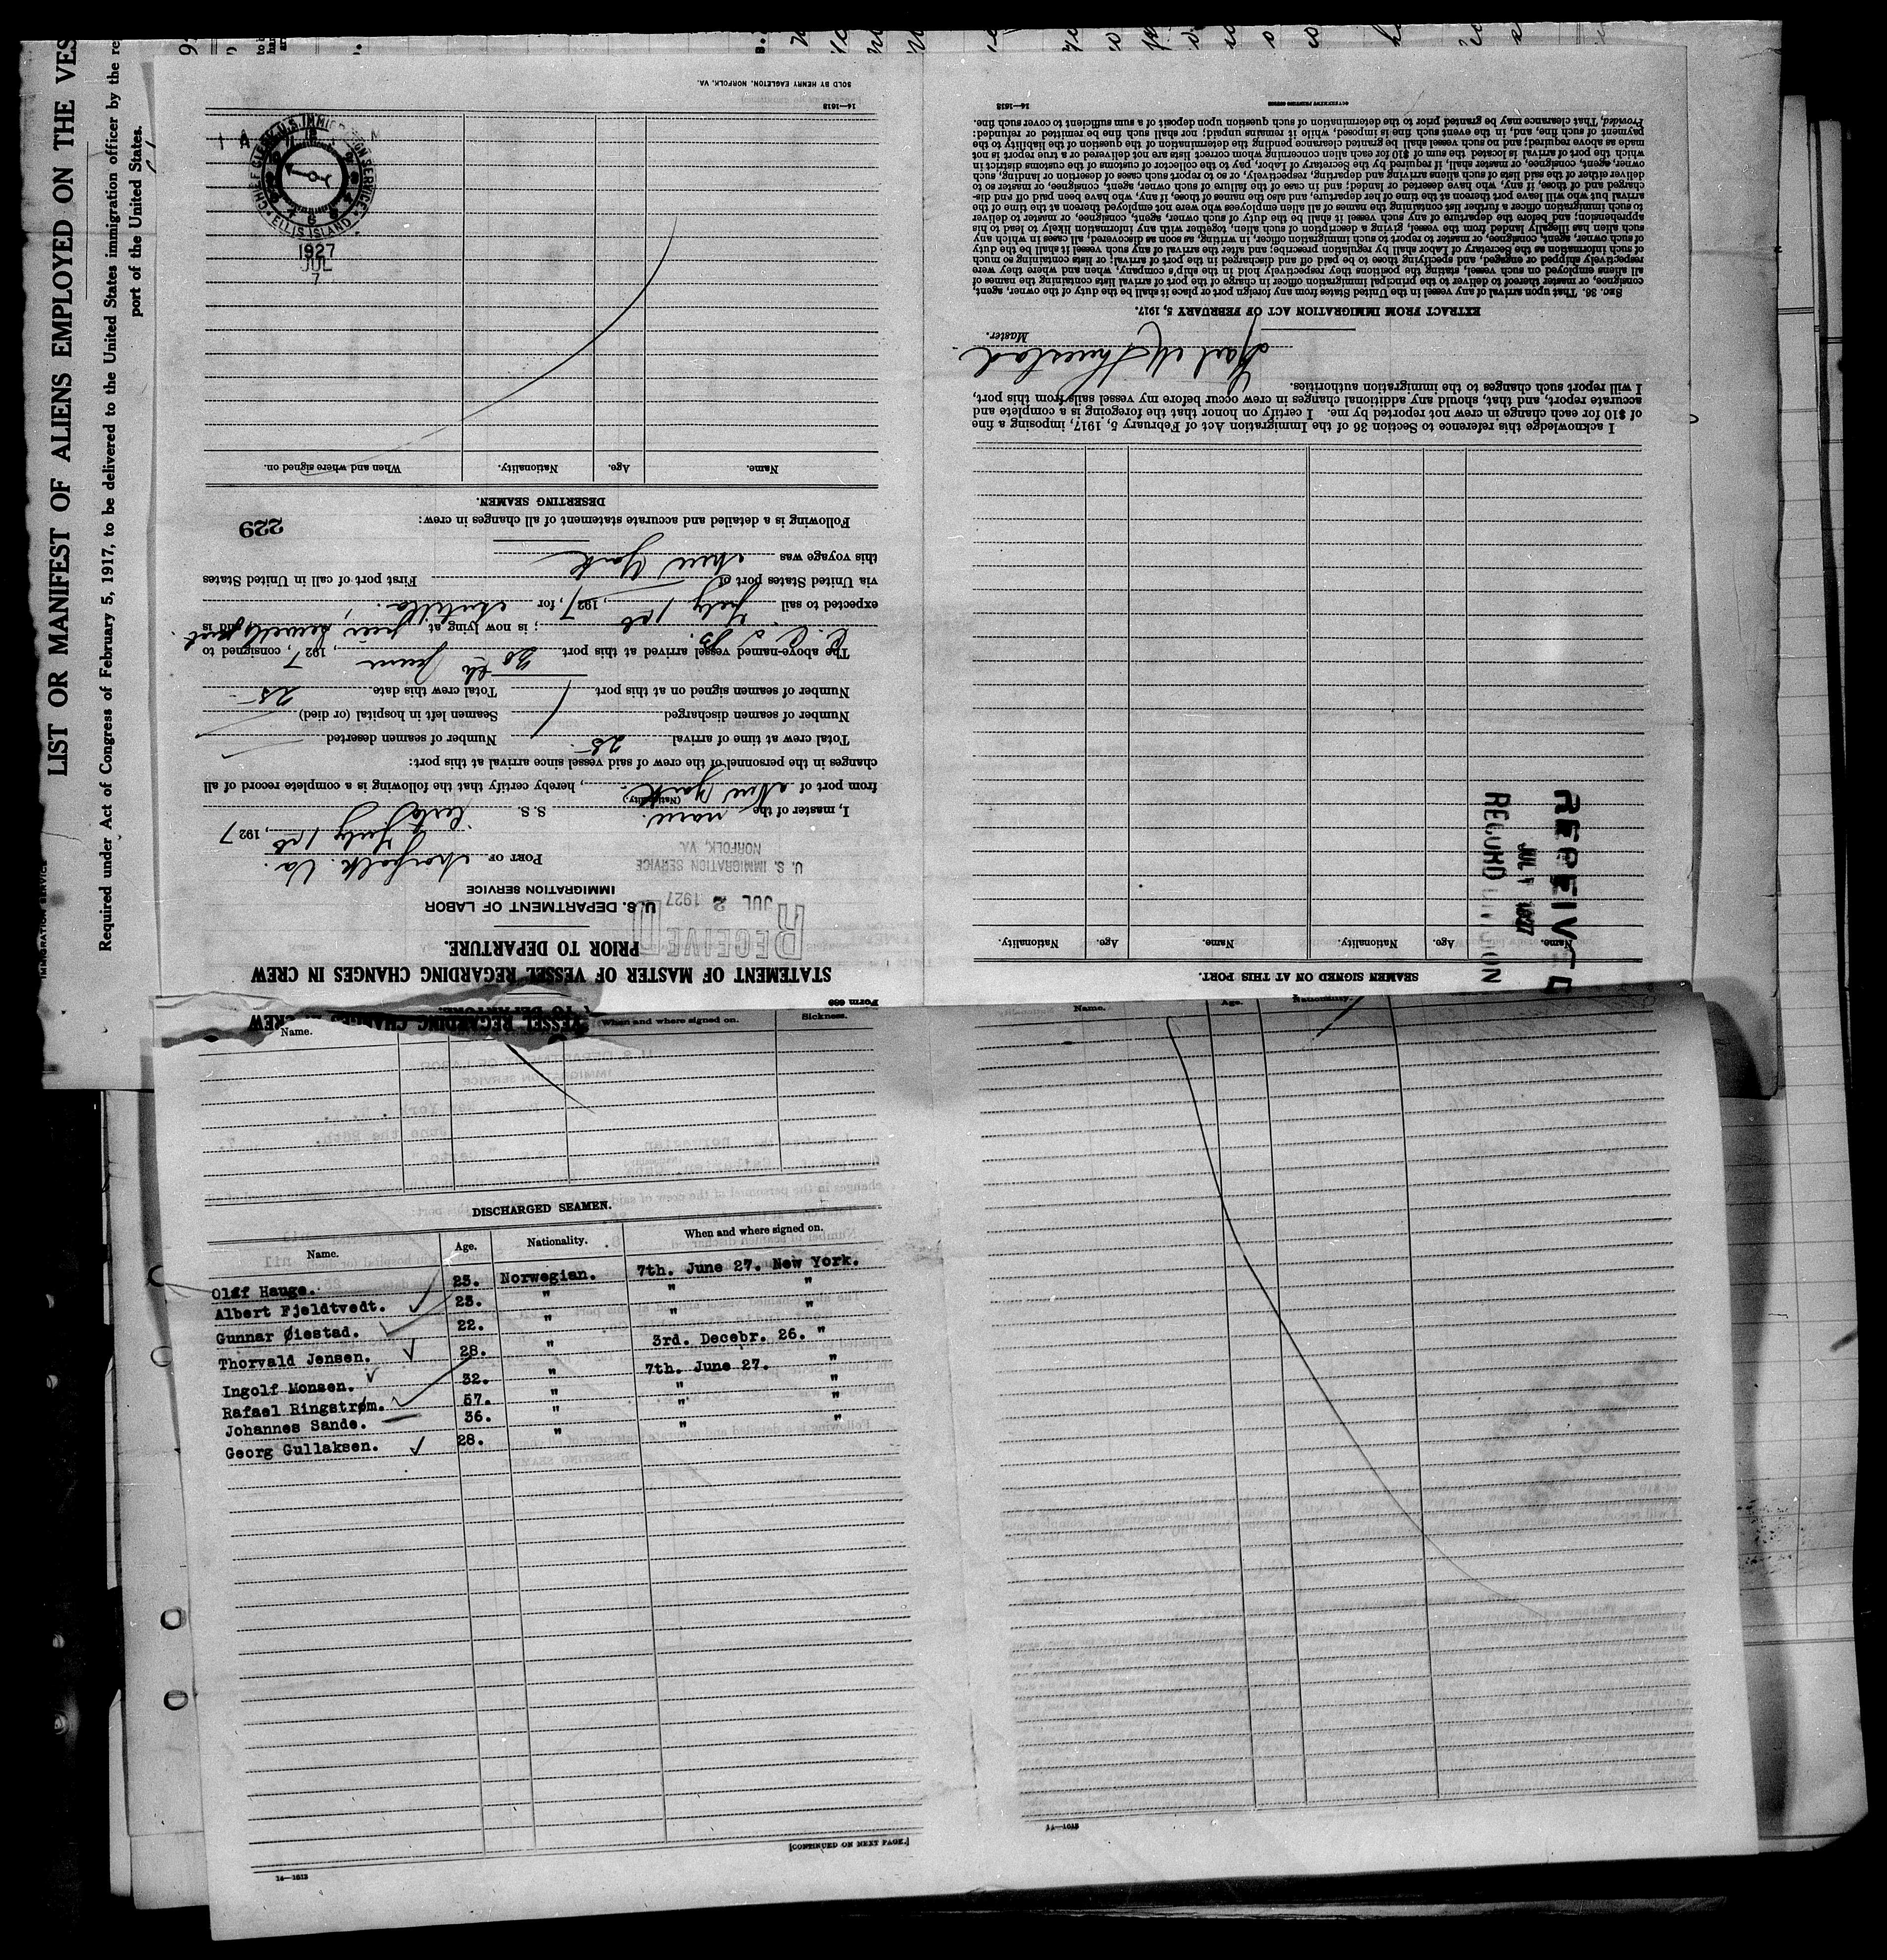 LIST OR MANIFEST OF ALIENS EMPLOYED ON THE VES
Required under Act of Congress of February 5, 1917, to be delivered to the United States immigration officer by the re
port of the United States.
IMMIGRATION SERVICE
Form 689
STATEMENT OF MASTER OF VESSEL REGARDING CHANGES IN CREW
PRIOR TO DEPARTURE.
U. S. DEPARTMENT OF LABOR
IMMIGRATION SERVICE
RECEIVED
JUL 2 1927
U. S. IMMIGRATION SERVICE
NORFOLK, VA.
PORT OF Norfolk Va.
July 1st, 1927
I, master of the norw. S. S.
(Nationality)
from port of New York, hereby certify that the following is a complete record of all
changes in the personnel of the crew of said vessel since arrival at this port:
Total crew at time of arrival 25. Number of seamen deserted
Number of seamen discharged Seamen left in hospital (or died)
Number of seamen signed on at this port Total crew this date 25
The above-named vessel arrived at this port 30th June, 1927, consigned to
; is now lying at pier Sewells Point, and is
expected to sail July 1st, 1927, for
via United States port of First port of call in United States
this voyage was New York
Following is a detailed and accurate statement of all changes in crew:
229
DESERTING SEAMEN.
Name. Age. Nationality. When and where signed on.
CHIEF CLERK U.S. IMMIGRATION SERVICE
ELLIS ISLAND
1927
JUL
7
14—1613
SOLD BY HENRY EAGLETON, NORFOLK, VA.
SEAMEN SIGNED ON AT THIS PORT.
Name. Age. Nationality. Name. Age. Nationality.
RECEIVED
JUL 1 1927
RECORD DIVISION
I acknowledge this reference to Section 36 of the Immigration Act of February 5, 1917, imposing a fine
of $10 for each change in crew not reported by me. I certify on honor that the foregoing is a complete and
accurate report, and that, should any additional changes in crew occur before my vessel sails from this port,
I will report such changes to the immigration authorities.
Master.
EXTRACT FROM IMMIGRATION ACT OF FEBRUARY 5, 1917.
SEC. 36. That upon arrival of any vessel in the United States from any foreign port or place it shall be the duty of the owner, agent,
consignee, or master thereof to deliver to the principal immigration officer in charge of the port of arrival lists containing the names of
all aliens employed on such vessel, stating the positions they respectively hold in the ship's company, when and where they were
respectively shipped or engaged, and specifying those to be paid off and discharged in the port of arrival; or lists containing so much
of such information as the Secretary of Labor shall by regulation prescribe; and after the arrival of any such vessel it shall be the duty
of such owner, agent, consignee, or master to report to such immigration officer, in writing, as soon as discovered, all cases in which any
such alien has illegally landed from the vessel, giving a description of such alien, together with any information likely to lead to his
apprehension; and before the departure of any such vessel it shall be the duty of such owner, agent, consignee, or master to deliver
to such immigration officer a further list containing the names of all alien employees who were not employed thereon at the time of the
arrival but who will leave port thereon at the time of her departure, and also the names of those, if any, who have been paid off and dis-
charged and of those, if any, who have deserted or landed; and in case of the failure of such owner, agent, consignee, or master so to
deliver either of the said lists of such aliens arriving and departing, respectively, or so to report such cases of desertion or landing, such
owner, agent, consignee, or master shall, if required by the Secretary of Labor, pay to the collector of customs of the customs district in
which the port of arrival is located the sum of $10 for each alien concerning whom correct lists are not delivered or a true report is not
made as above required; and no such vessel shall be granted clearance pending the determination of the question of the liability to the
payment of such fine, and, in the event such fine is imposed, while it remains unpaid; nor shall such fine be remitted or refunded:
Provided, That clearance may be granted prior to the determination of such question upon deposit of a sum sufficient to cover such fine.
14—1613
GOVERNMENT PRINTING OFFICE
VESSEL REGARDING CHANGES IN CREW
TO DEPARTURE.
Name. When and where signed on. Sickness.
Name. Age. Nationality.
DISCHARGED SEAMEN.
Name. Age. Nationality. When and where signed on.
Olaf Hauge. 25. Norwegian. 7th. June 27. New York.
Albert Fjeldtvedt. 23. " " "
Gunnar Øiestad. 22. " " "
Thorvald Jensen. 28. " 3rd. Decebr. 26. "
Ingolf Monsen. 32. " 7th. June 27. "
Rafael Ringstrøm. 57. " " "
Johannes Sande. 36. " " "
Georg Gullaksen. 28. " " "
[CONTINUED ON NEXT PAGE.]
14—1613
14—1613